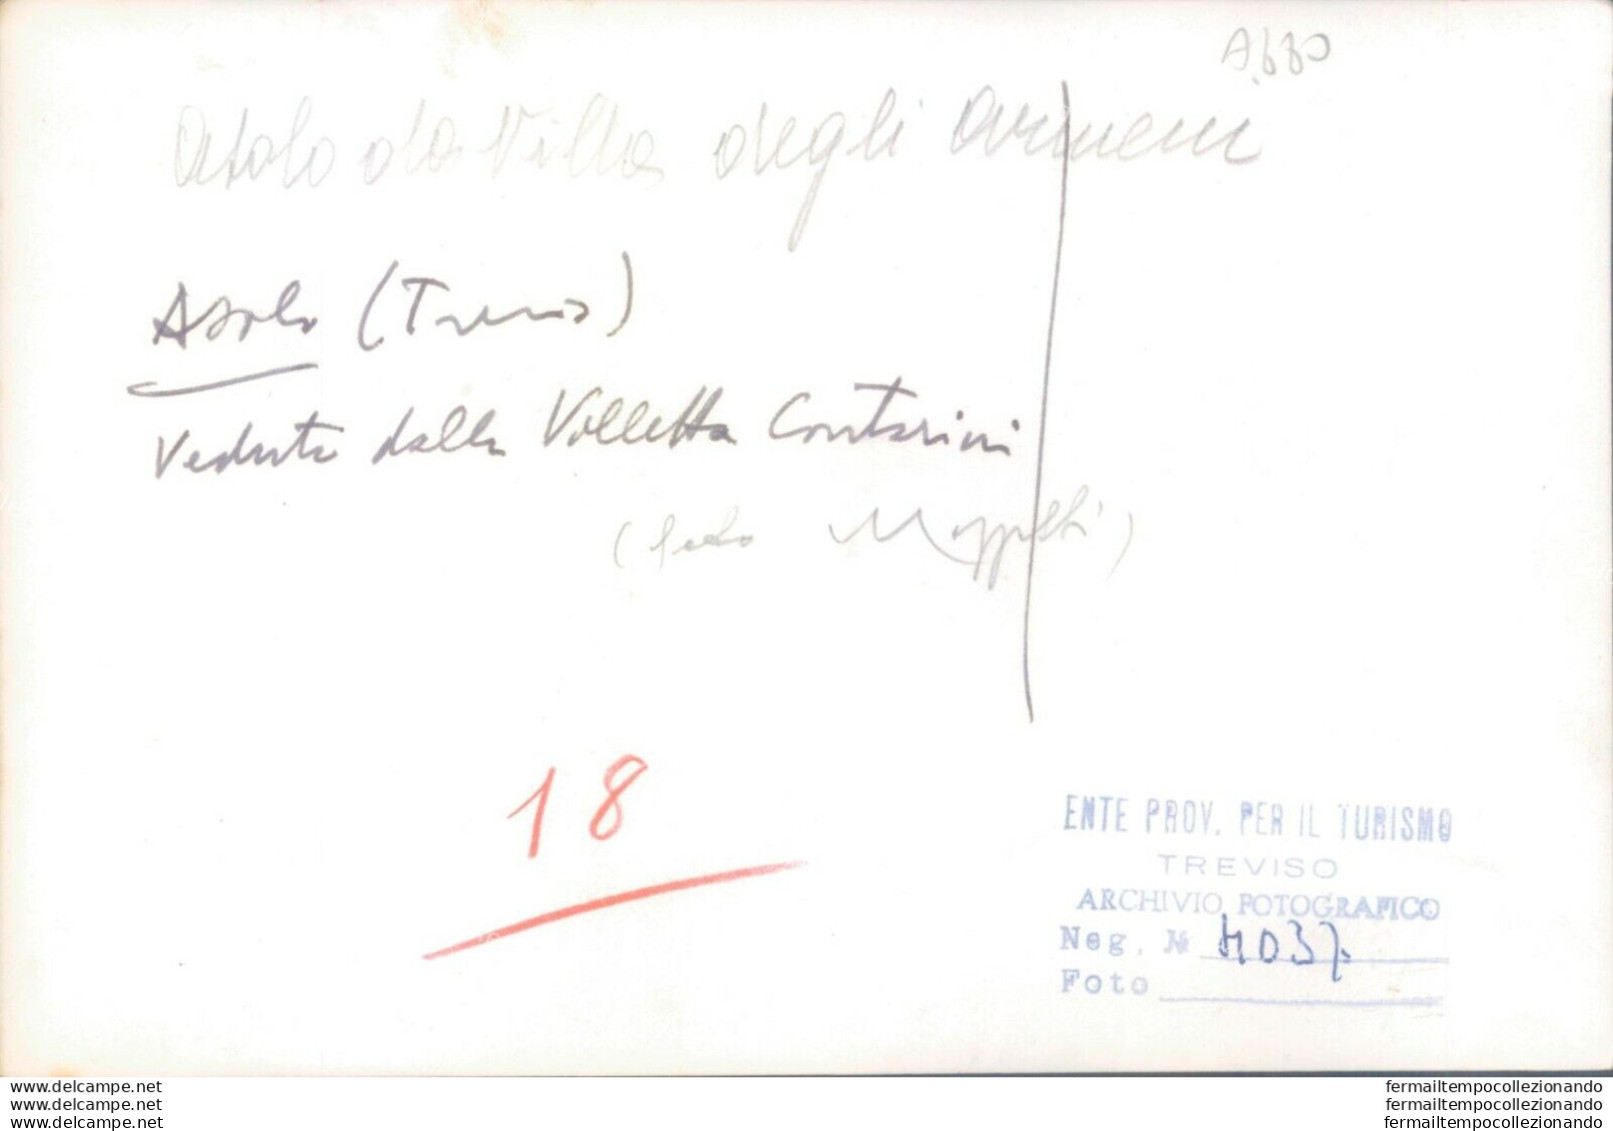 Asolo da Villa degli Armeni
Asolo (Treviso)
Veduta dalla Villetta Contarini
(foto
18
ENTE PROV. PER IL TURISMO
TREVISO
ARCHIVIO FOTOGRAFICO
Neg. № 4037
Foto
www.delcampe.net
www.delcampe.net
www.delcampe.net
fermailtempocollezionando
fermailtempocollezionando
fermailtempocollezionando